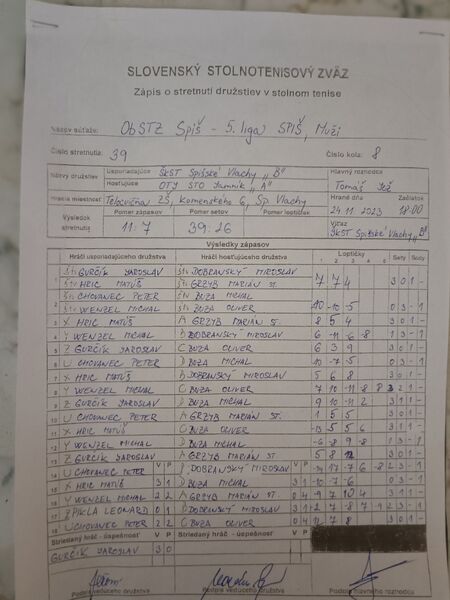 SLOVENSKÝ STOLNOTENISOVÝ ZVÄZ
Zápis o stretnutí družstiev v stolnom tenise
Názov súťaže: ObSTZ Spiš - 5. liga SPIŠ, Muži
Číslo stretnutia: 39 Číslo kola: 8
Názvy družstiev Usporiadajúce ŠKST Spišské Vlachy "B" Hlavný rozhodca
Hosťujúce OTJ STO Jamník "A" Tomáš
Hracia miestnosť Telocvičňa ZŠ, Komenského 6, Sp. Vlachy Hrané dňa Začiatok
Výsledok stretnutia Pomer zápasov Pomer setov Pomer loptičiek 24.11.2023 18:00
11:7 39:26 Víťaz ŠKST Spišské Vlachy "B"
Výsledky zápasov
Hráči usporiadajúceho družstva Hráči hosťujúceho družstva Loptičky Sety Body
1 2 3 4 5
GURČÍK JAROSLAV DOBRANSKÝ MIROSLAV
1 HRIC MATÚŠ GRZYB MARIÁN ST. 7 7 4 3 0 1 -
CHOVANEC PETER BUZA MICHAL
2 WENZEL MICHAL BUZA OLIVER -10 -10 -5 0 3 - 1
3 X HRIC MATÚŠ A GRZYB MARIÁN ST. 8 5 4 3 0 1 -
4 Y WENZEL MICHAL B DOBRANSKÝ MIROSLAV
5 Z GURČÍK JAROSLAV C BUZA OLIVER 6 3 9 3 0 1 -
6 U CHOVANEC PETER D BUZA MICHAL -10 -7 -5 0 3 - 1
7 X HRIC MATÚŠ B DOBRANSKÝ MIROSLAV 5 6 8 3 0 1 -
8 Y WENZEL MICHAL C BUZA OLIVER
9 Z GURČÍK JAROSLAV D BUZA MICHAL
10 U CHOVANEC PETER A GRZYB MARIÁN ST. 1 5 5 3 0 1 -
11 X HRIC MATÚŠ C BUZA OLIVER -13 5 5 6 3 1 1 -
12 Y WENZEL MICHAL D BUZA MICHAL
13 Z GURČÍK JAROSLAV A GRZYB MARIÁN ST 5 8 12 3 0 1 -
14 U CHOVANEC PETER V P B DOBRANSKÝ MIROSLAV V P
15 X HRIC MATÚŠ 3 1 D BUZA MICHAL 3 1
16 Y WENZEL MICHAL 2 2 A GRZYB MARIÁN ST 0 4
17 Z PIKLA LEONARD 0 1 B DOBRANSKÝ MIROSLAV
18 U CHOVANEC PETER 2 2 C BUZA OLIVER 0 4 11 7 8 3 0 1 -
Striedaný hráč - úspešnosť V P Striedaný hráč - úspešnosť V P
GURČÍK JAROSLAV 3 0
Podpis vedúceho družstva Podpis vedúceho družstva Podpis hlavného rozhodcu